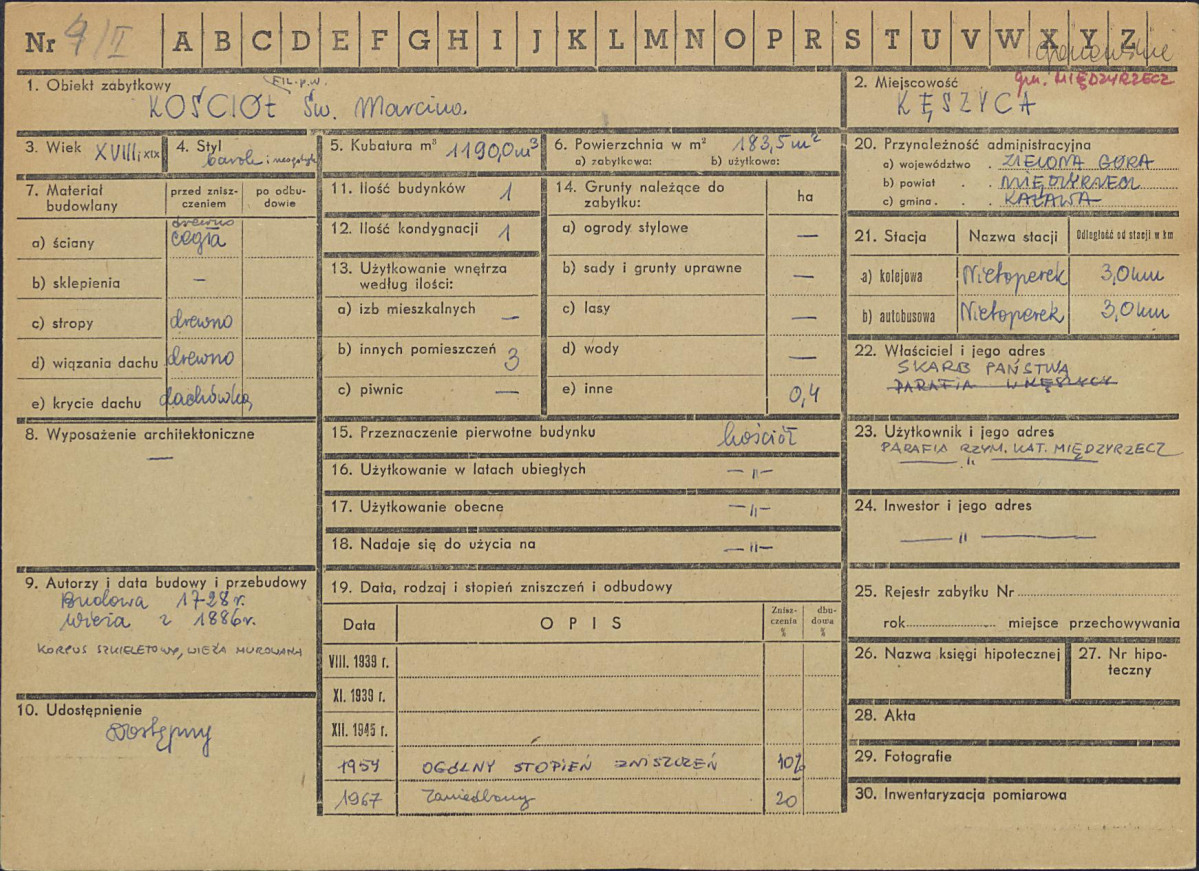 Nr 4/II A B C D E F G H I J K L M N O P R S T U V W X Y Z
1. Obiekt zabytkowy
FIL. p.w.
KOŚCIÓŁ Św. Marcina
2. Miejscowość
gm. MIĘDZYRZECZ
KĘSZYCA
3. Wiek XVIII i XIX
4. Styl
barok i neogotyk
5. Kubatura m³ 1190,0 m³
6. Powierzchnia w m² 183,5 m²
a) zabytkowa: b) użytkowa:
7. Materiał budowlany
przed zniszczeniem
po odbudowie
a) ściany drewno
cegła
b) sklepienia –
c) stropy drewno
d) wiązania dachu drewno
e) krycie dachu dachówka
8. Wyposażenie architektoniczne
—
9. Autorzy i data budowy i przebudowy
Budowa 1728 r.
Wieża z 1886 r.
KORPUS SZKIELETOWY, WIEŻA MUROWANA
10. Udostępnienie
Dostępny
11. Ilość budynków 1
12. Ilość kondygnacji 1
13. Użytkowanie wnętrza
według ilości:
a) izb mieszkalnych –
b) innych pomieszczeń 3
c) piwnic —
14. Grunty należące do
zabytku: ha
a) ogrody stylowe —
b) sady i grunty uprawne —
c) lasy —
d) wody —
e) inne 0,4
15. Przeznaczenie pierwotne budynku kościół
16. Użytkowanie w latach ubiegłych –"–
17. Użytkowanie obecne –"–
18. Nadaje się do użycia na –"–
19. Data, rodzaj i stopień zniszczeń i odbudowy
Data OPIS Zniszczenia % dbudowa %
VIII. 1939 r.
XI. 1939 r.
XII. 1945 r.
1959 OGÓLNY STOPIEŃ ZNISZCZEŃ 10%
1967 Zaniedbany 20
20. Przynależność administracyjna
a) województwo . ZIELONA GÓRA
b) powiat . . MIĘDZYRZECZ
c) gmina . . KALAWA
21. Stacja Nazwa stacji Odległość od stacji w km
a) kolejowa Nietoperek 3,0 km
b) autobusowa Nietoperek 3,0 km
22. Właściciel i jego adres
SKARB PAŃSTWA
PARAFIA W KĘSZYCY
23. Użytkownik i jego adres
PARAFIA RZYM. KAT. MIĘDZYRZECZ
—"—
24. Inwestor i jego adres
—"—
25. Rejestr zabytku Nr
rok miejsce przechowywania
26. Nazwa księgi hipotecznej
27. Nr hipoteczny
28. Akta
29. Fotografie
30. Inwentaryzacja pomiarowa